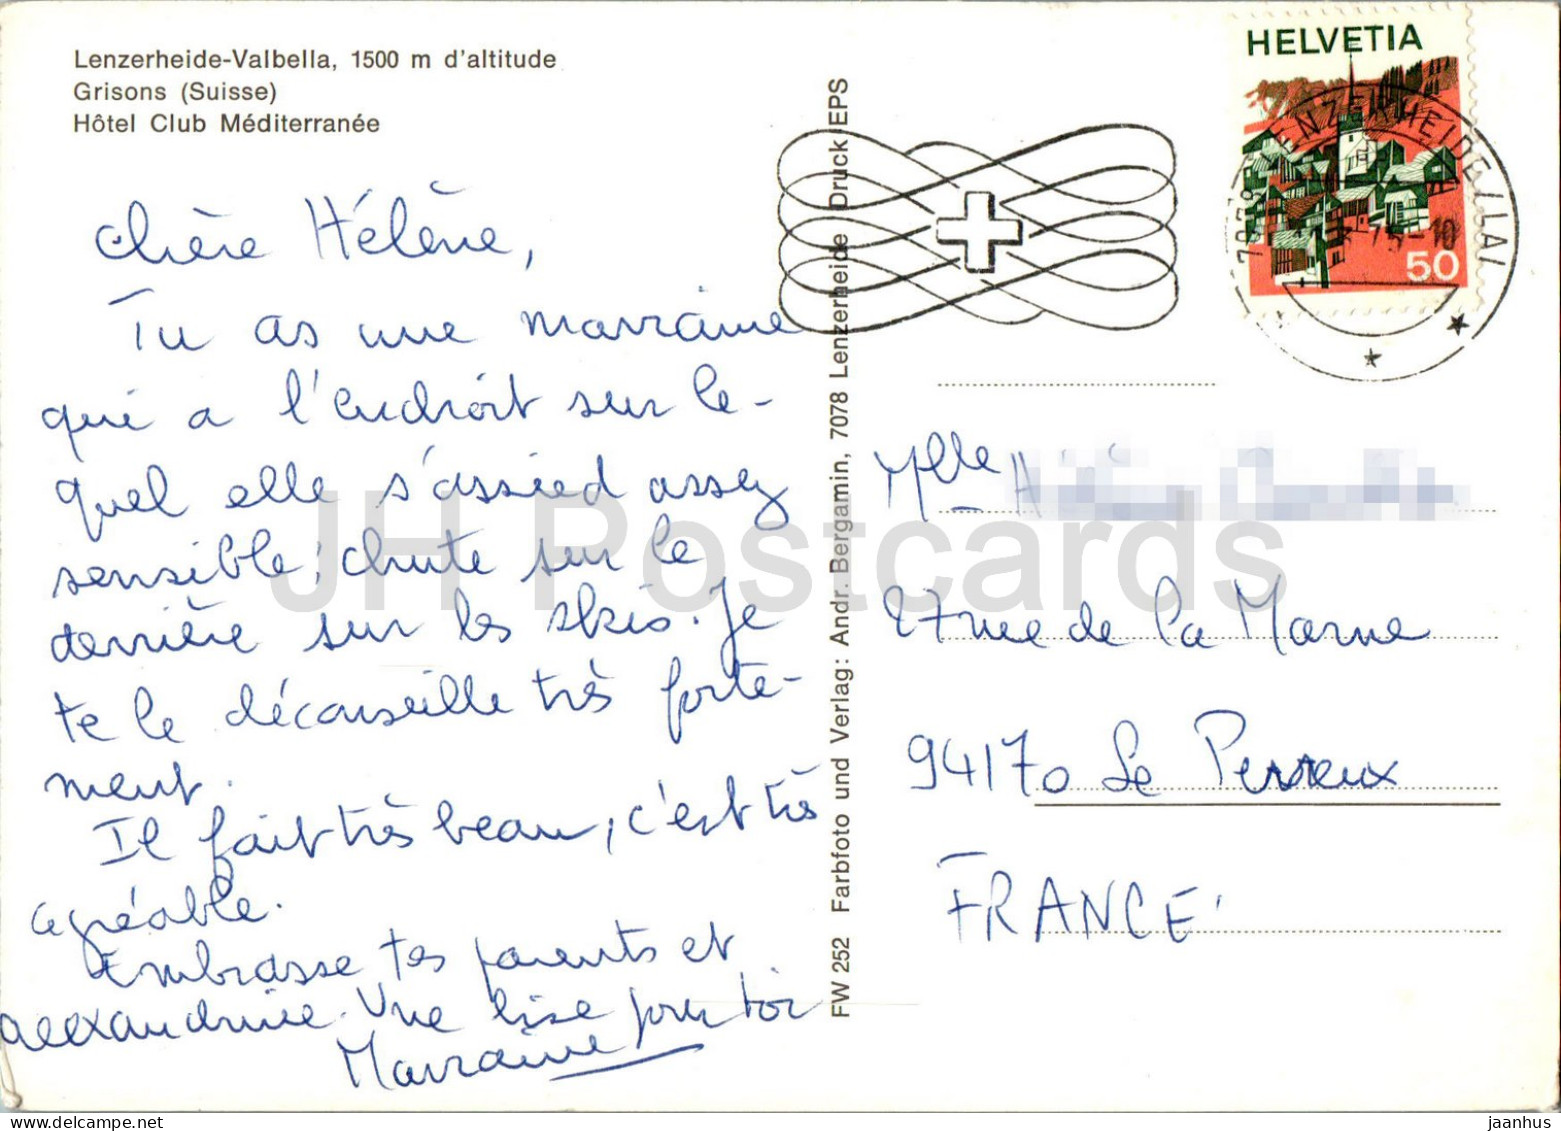 Lenzerheide-Valbella, 1500 m d'altitude
Grisons (Suisse)
Hôtel Club Méditerranée
chère Hélène,
Tu as une marraine
qui a l'endroit sur le-
quel elle s'assied assez
sensible; chute sur le
derrière sur les skis. Je
te le déconseille très forte-
ment.
Il fait très beau, c'est très
agréable.
Embrasse tes parents et
alexandrine. Une bise pour toi
Marraine
FW 252 Farbfoto und Verlag: Andr. Bergamin, 7078 Lenzerheide Druck EPS
HELVETIA
50
7078 LENZERHEIDE/LAI
75-10
Mlle
27 rue de la Marne
94170 Le Perreux
FRANCE
JH Postcards
jaanhus